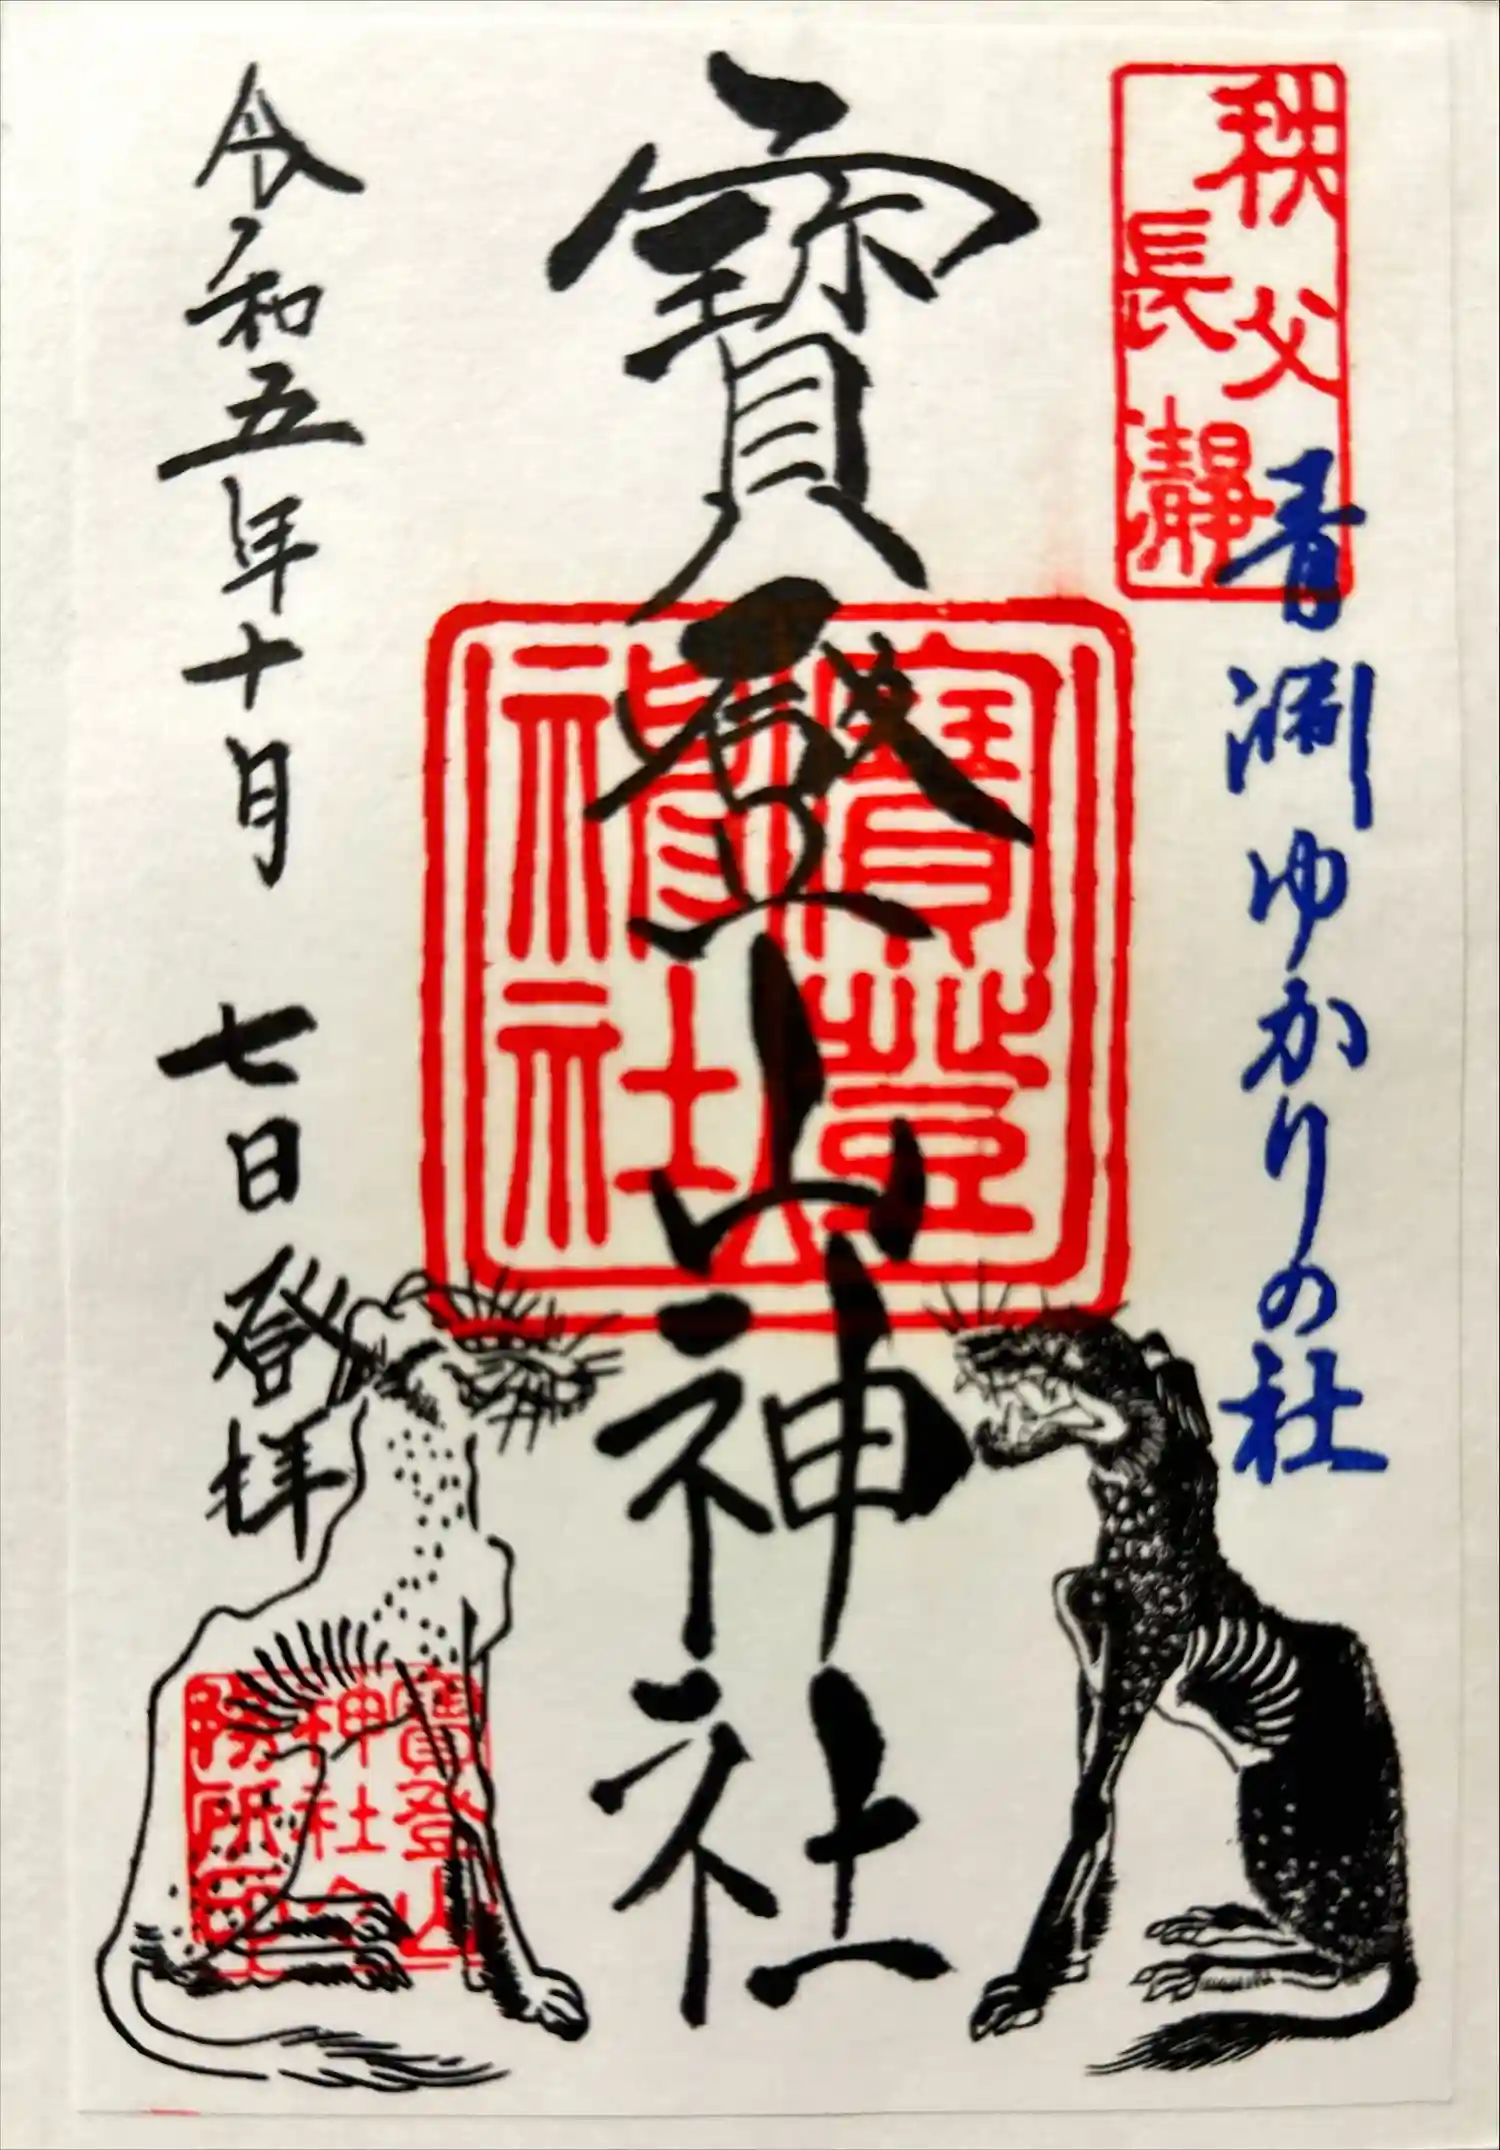 秩父
長瀞
青淵ゆかりの社
寳登山神社
寳登
神社
令和五年十月 七日 登拝
寳登山
神社
務所